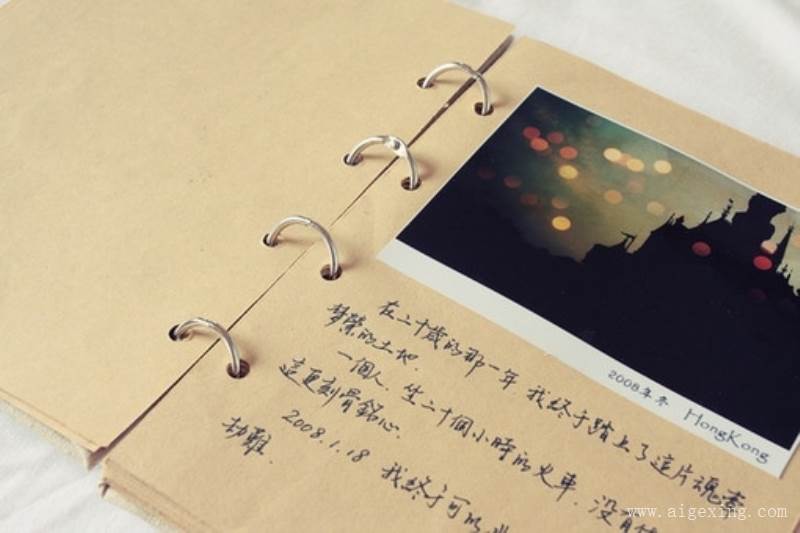 2008年冬 HongKong
在二十歲的那一年 我終于踏上了這片魂牽
夢縈的土地.
一個人. 坐二十個小時的火車. 沒有
這更刻骨銘心.
2008.1.18 我終于可以
劫難.
www.aigexing.com